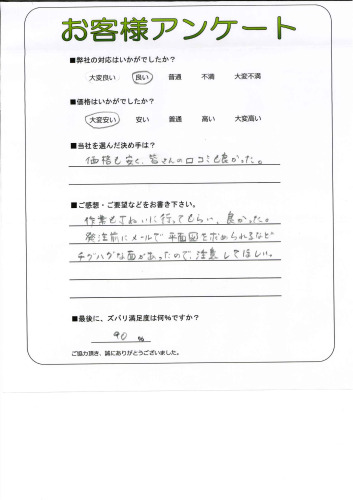 お客様アンケート
■弊社の対応はいかがでしたか？
大変良い 良い 普通 不満 大変不満
■価格はいかがでしたか？
大変安い 安い 普通 高い 大変高い
■当社を選んだ決め手は？
価格も安く、皆さんの口コミも良かった。
■ご感想・ご要望などをお書き下さい。
作業もきれいに行ってもらい、良かった。
発注前にメールで平面図を求められるなど
チグハグな面があったので、注意してほしい。
■最後に、ズバリ満足度は何%ですか？
90 %
ご協力頂き、誠にありがとうございました。